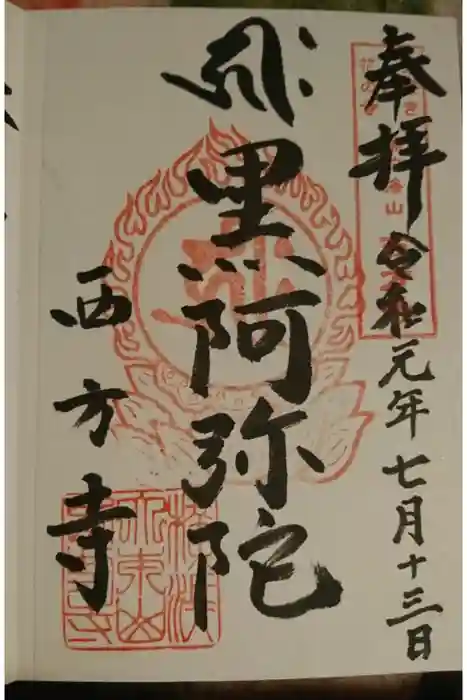 奉拝 令和元年七月十三日
黒阿弥陀
西方寺